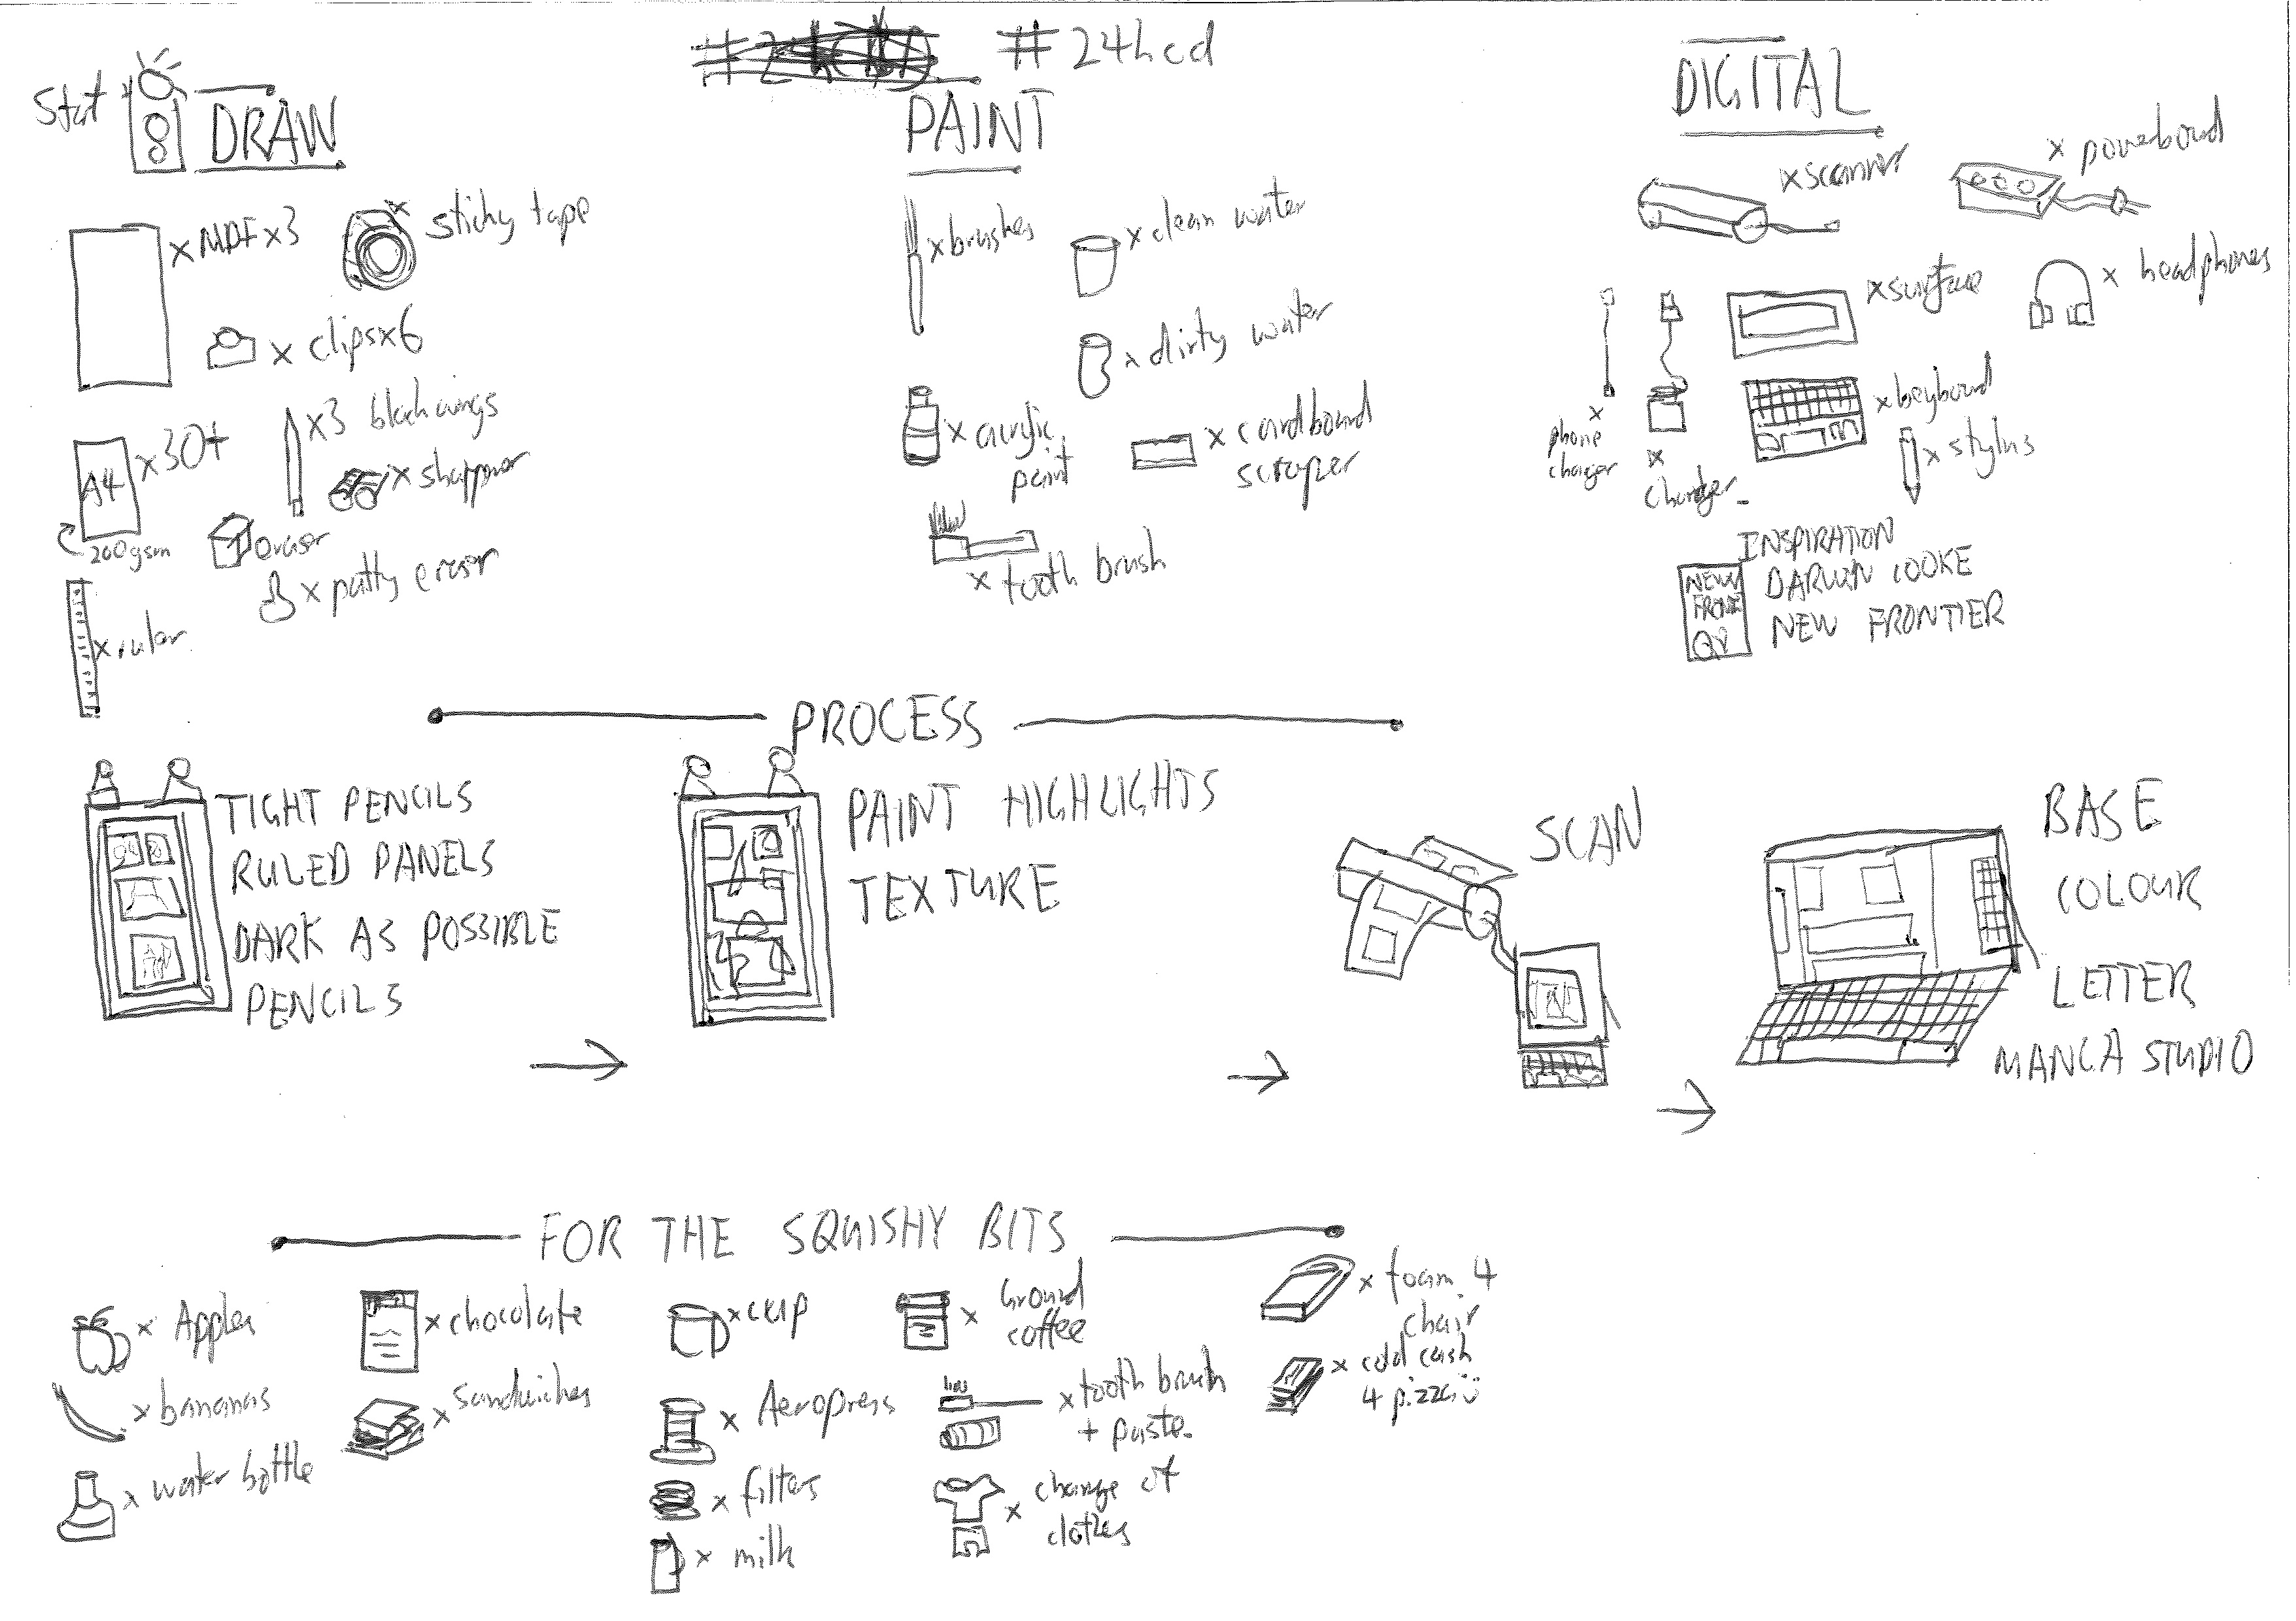 #24hcd
Start
DRAW
x MDF x3
x sticky tape
x clips x6
A4
x30+
200gsm
x3 blackwings
x sharpener
eraser
x putty eraser
x ruler
PAINT
x brushes
x clean water
x dirty water
x acrylic
paint
x cardboard
scraper
x tooth brush
DIGITAL
x scanner
x powerboard
x surface
x headphones
x
phone
charger
x
charger
x keyboard
x stylus
INSPIRATION
DARWYN COOKE
NEW FRONTIER
NEW
PROCESS
TIGHT PENCILS
RULED PANELS
DARK AS POSSIBLE
PENCILS
PAINT HIGHLIGHTS
TEXTURE
SCAN
BASE
COLOUR
LETTER
MANGA STUDIO
FOR THE SQUISHY BITS
x Apples
x bananas
x water bottle
x chocolate
x sandwiches
x cup
x Aeropress
x filters
x milk
x Ground
coffee
x tooth brush
+ paste.
x change of
clothes
x foam 4
chair
x cold cash
4 pizza